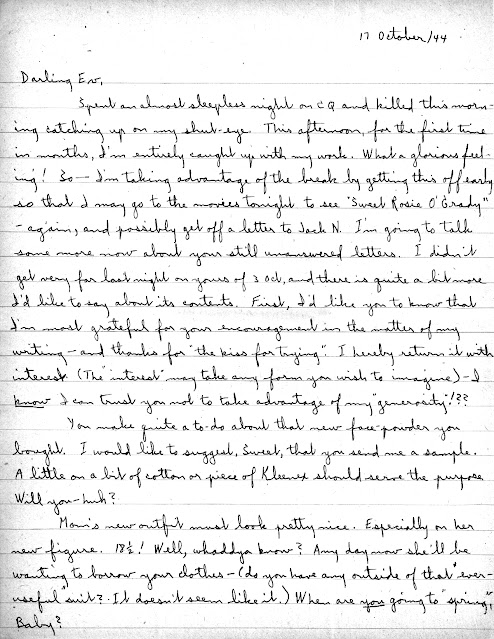 17 October/44
Darling Ev,
Spent an almost sleepless night on CQ and killed this morn-
ing catching up on my shut-eye. This afternoon, for the first time
in months, I'm entirely caught up with my work. What a glorious feel-
ing! So — I'm taking advantage of the break by getting this off early
so that I may go to the movies tonight to see "Sweet Rosie O'Grady"
- again, and possibly get off a letter to Jack N. I'm going to talk
some more now about your still unanswered letters. I didn't
get very far last night on yours of 3 Oct, and there is quite a bit more
I'd like to say about its contents. First, I'd like you to know that
I'm most grateful for your encouragement in the matter of my
writing - and thanks for "the kiss for trying". I hereby return it with
interest (The "interest" may take any form you wish to imagine) - I
know I can trust you not to take advantage of my "generosity"!??
You make quite a to-do about that new face-powder you
bought. I would like to suggest, Sweet, that you send me a sample.
A little on a bit of cotton or piece of Kleenex should serve the purpose
Will you - huh?
Mom's new outfit must look pretty nice. Especially on her
new figure. 18½! Well, whaddya know? Any day now she'll be
wanting to borrow your clothes - (do you have any outside of that "ever-
useful" suit? It doesn't seem like it.) When are you going to "spring",
Baby?